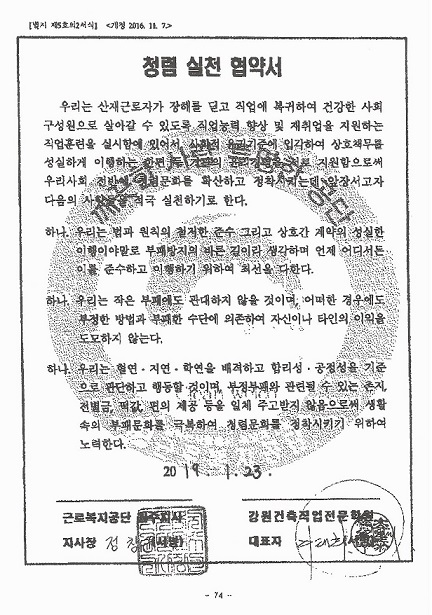 [별지 제5호의2서식] <개정 2016. 11. 7.>
청렴 실천 협약서
우리는 산재근로자가 장해를 딛고 직업에 복귀하여 건강한 사회
구성원으로 살아갈 수 있도록 직업능력 향상 및 재취업을 지원하는
직업훈련을 실시함에 있어서, 사회적 윤리기준에 입각하여 상호책무를
성실하게 이행하는 한편 두 기관의 윤리경영을 적극 지원함으로써
우리사회 전반에 청렴문화를 확산하고 정착시키는데 앞장서고자
다음의 사항들을 적극 실천하기로 한다.
하나. 우리는 법과 원칙의 철저한 준수 그리고 상호간 계약의 성실한
이행이야말로 부패방지의 바른 길이라 생각하며 언제 어디서든
이를 준수하고 이행하기 위하여 최선을 다한다.
하나. 우리는 작은 부패에도 관대하지 않을 것이며, 어떠한 경우에도
부정한 방법과 부패한 수단에 의존하여 자신이나 타인의 이익을
도모하지 않는다.
하나. 우리는 혈연·지연·학연을 배격하고 합리성·공정성을 기준
으로 판단하고 행동할 것이며, 부정부패와 관련될 수 있는 촌지,
전별금, 떡값, 편의 제공 등을 일체 주고받지 않음으로써 생활
속의 부패문화를 극복하여 청렴문화를 정착시키기 위하여
노력한다.
20 19. 1. 23.
근로복지공단 원주지사 강원건축직업전문학원
지사장 대표자
- 74 -